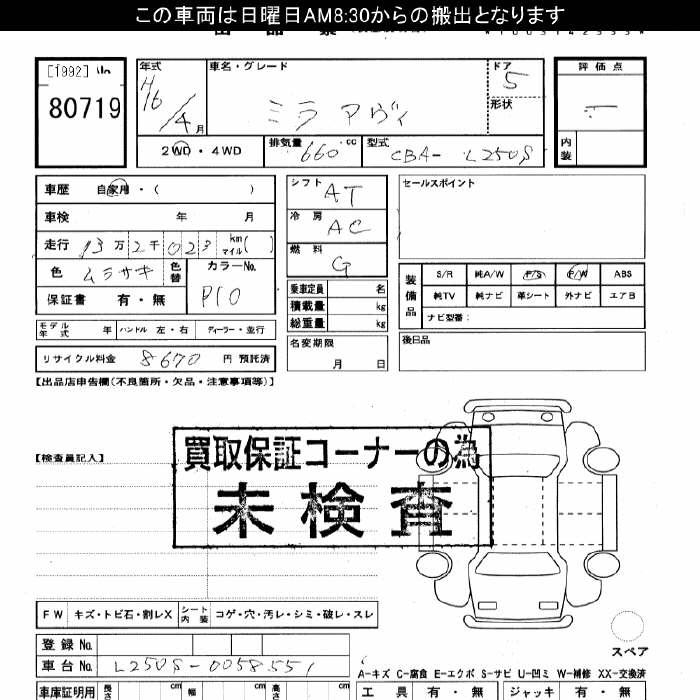 この車両は日曜日AM8:30からの搬出となります
[1992]
80719
年式
H16/4月
車名・グレード
ミラ アヴィ
ドア
5
形状
評価点
内装
2WD・4WD
排気量 660 cc
型式 CBA- L250S
車歴 自家用・( )
車検 年 月
走行 13万2千023 km マイル( )
色 ムラサキ 色替
カラーNo. P10
保証書 有・無
シフト AT
冷房 AC
燃料 G
乗車定員 名
積載量 kg
総重量 kg
名変期限
月 日
セールスポイント
装備品
S/R 純A/W P/S P/W ABS
純TV 純ナビ 革シート 外ナビ エアB
ナビ型番:
後日品
モデル年式 年 ハンドル 左・右 ディーラー・並行
リサイクル料金 8670 円 預託済
【出品店申告欄(不良箇所・欠品・注意事項等)】
【検査員記入】
買取保証コーナーの為
未検査
FW キズ・トビ石・割レX シート内装 コゲ・穴・汚レ・シミ・破レ・スレ
スペア
登録No.
車台No. L250S-0058551
A-キズ C-腐食 E-エクボ S-サビ U-凹ミ W-補修 XX-交換済
車庫証明用 長さ cm 幅 cm 高さ cm
工具 有・無 ジャッキ 有・無